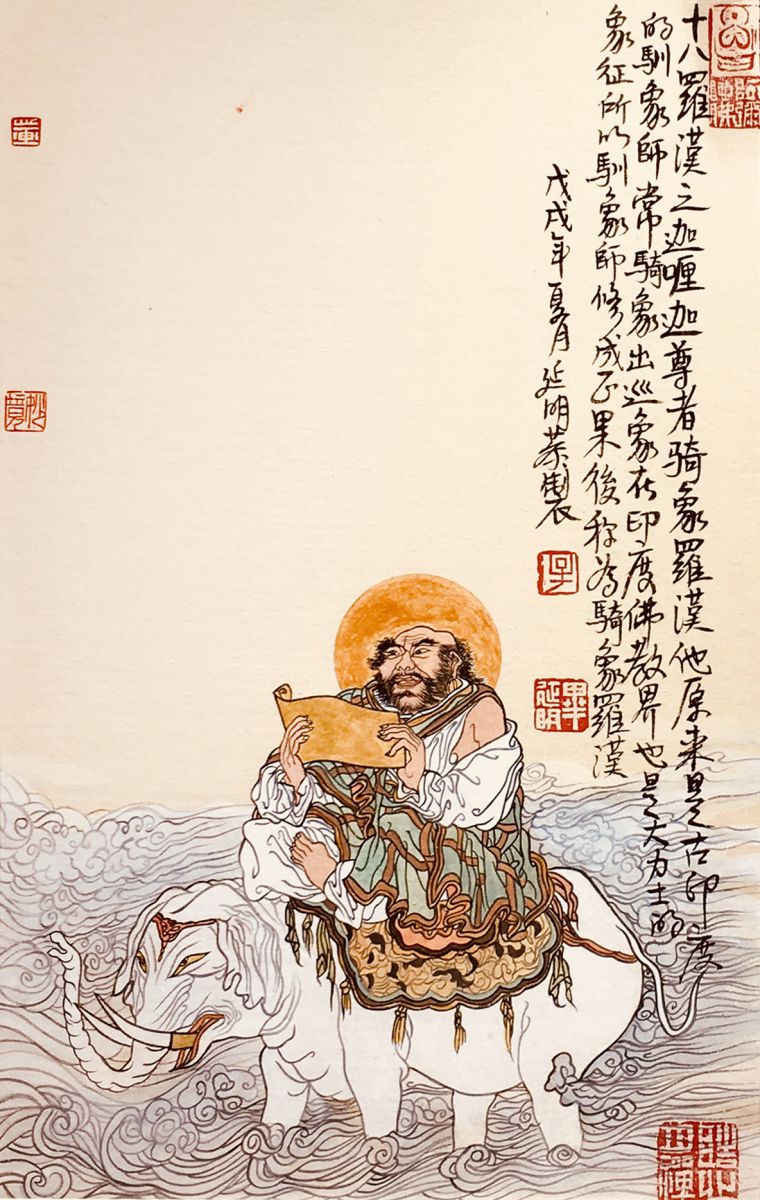 十八羅漢之迦喱迦尊者骑象羅漢他原来是古印度
的馴象師常騎象出巡象在印度佛教界也是大力士的
象征所以馴象師修成正果後称為騎象羅漢
戊戌年夏月延明恭製
畢延明
阿彌陀佛